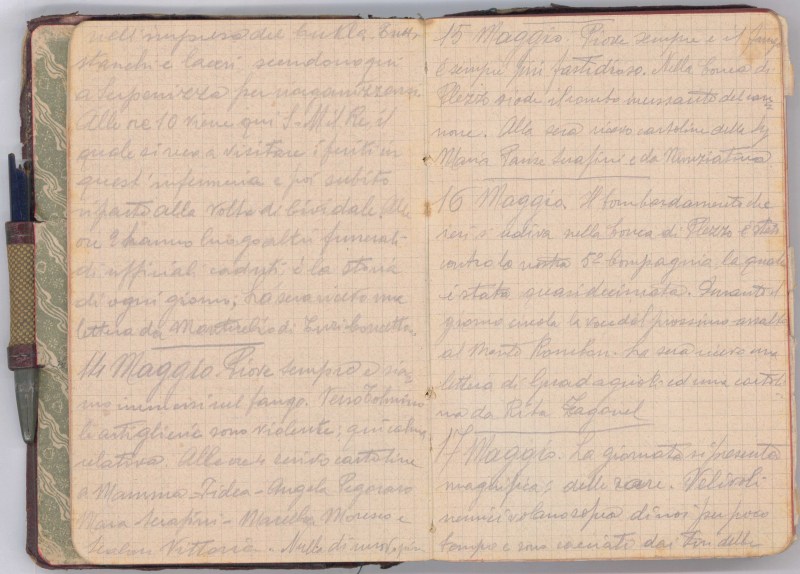 nell'impresa del Cukla. Tutti
stanchi e laceri scendono qui
a Serpenizza per riorganizzarsi.
Alle ore 10 viene qui S. M. il Re il
quale si reca a visitare i feriti in
quest'infermeria e poi subito
riparte alla volta di Cividale. Alle
ore 2 hanno luogo altri funerali
di ufficiali caduti è la storia
di ogni giorno; La sera ricevo una
lettera da di
14 Maggio. Piove sempre e sia-
mo immersi nel fango. Verso Tolmino
le artiglierie sono violente; qui calma
relativa. Alle ore 4 scrivo cartoline
a Mamma Fidea - Angela Pegoraro
Mara Serafini - Marcella Moresco e
Vittoria. - Nulla di
15 Maggio. Piove sempre e il fango
è sempre più fastidioso. Nella Conca di
Plezzo si ode il rombo incessante del can-
none. Alla sera ricevo cartoline delle Sig
Maria Serafini e da Nunziatina
16 Maggio. Il bombardamento che
ieri s'udiva nella Conca di Plezzo è stato
contro la nostra 5ª Compagnia la quale
è stata quasi decimata. Durante il
giorno circola la voce del prossimo assalto
al Monte Rombon. La sera ricevo una
lettera di ed una cartoli
na da Rita Zagonel
17 Maggio. La giornata si presenta
magnifica; delle rare. Velivoli
nemici volano sopra di noi per poco
tempo e sono cacciati dai tiri delle